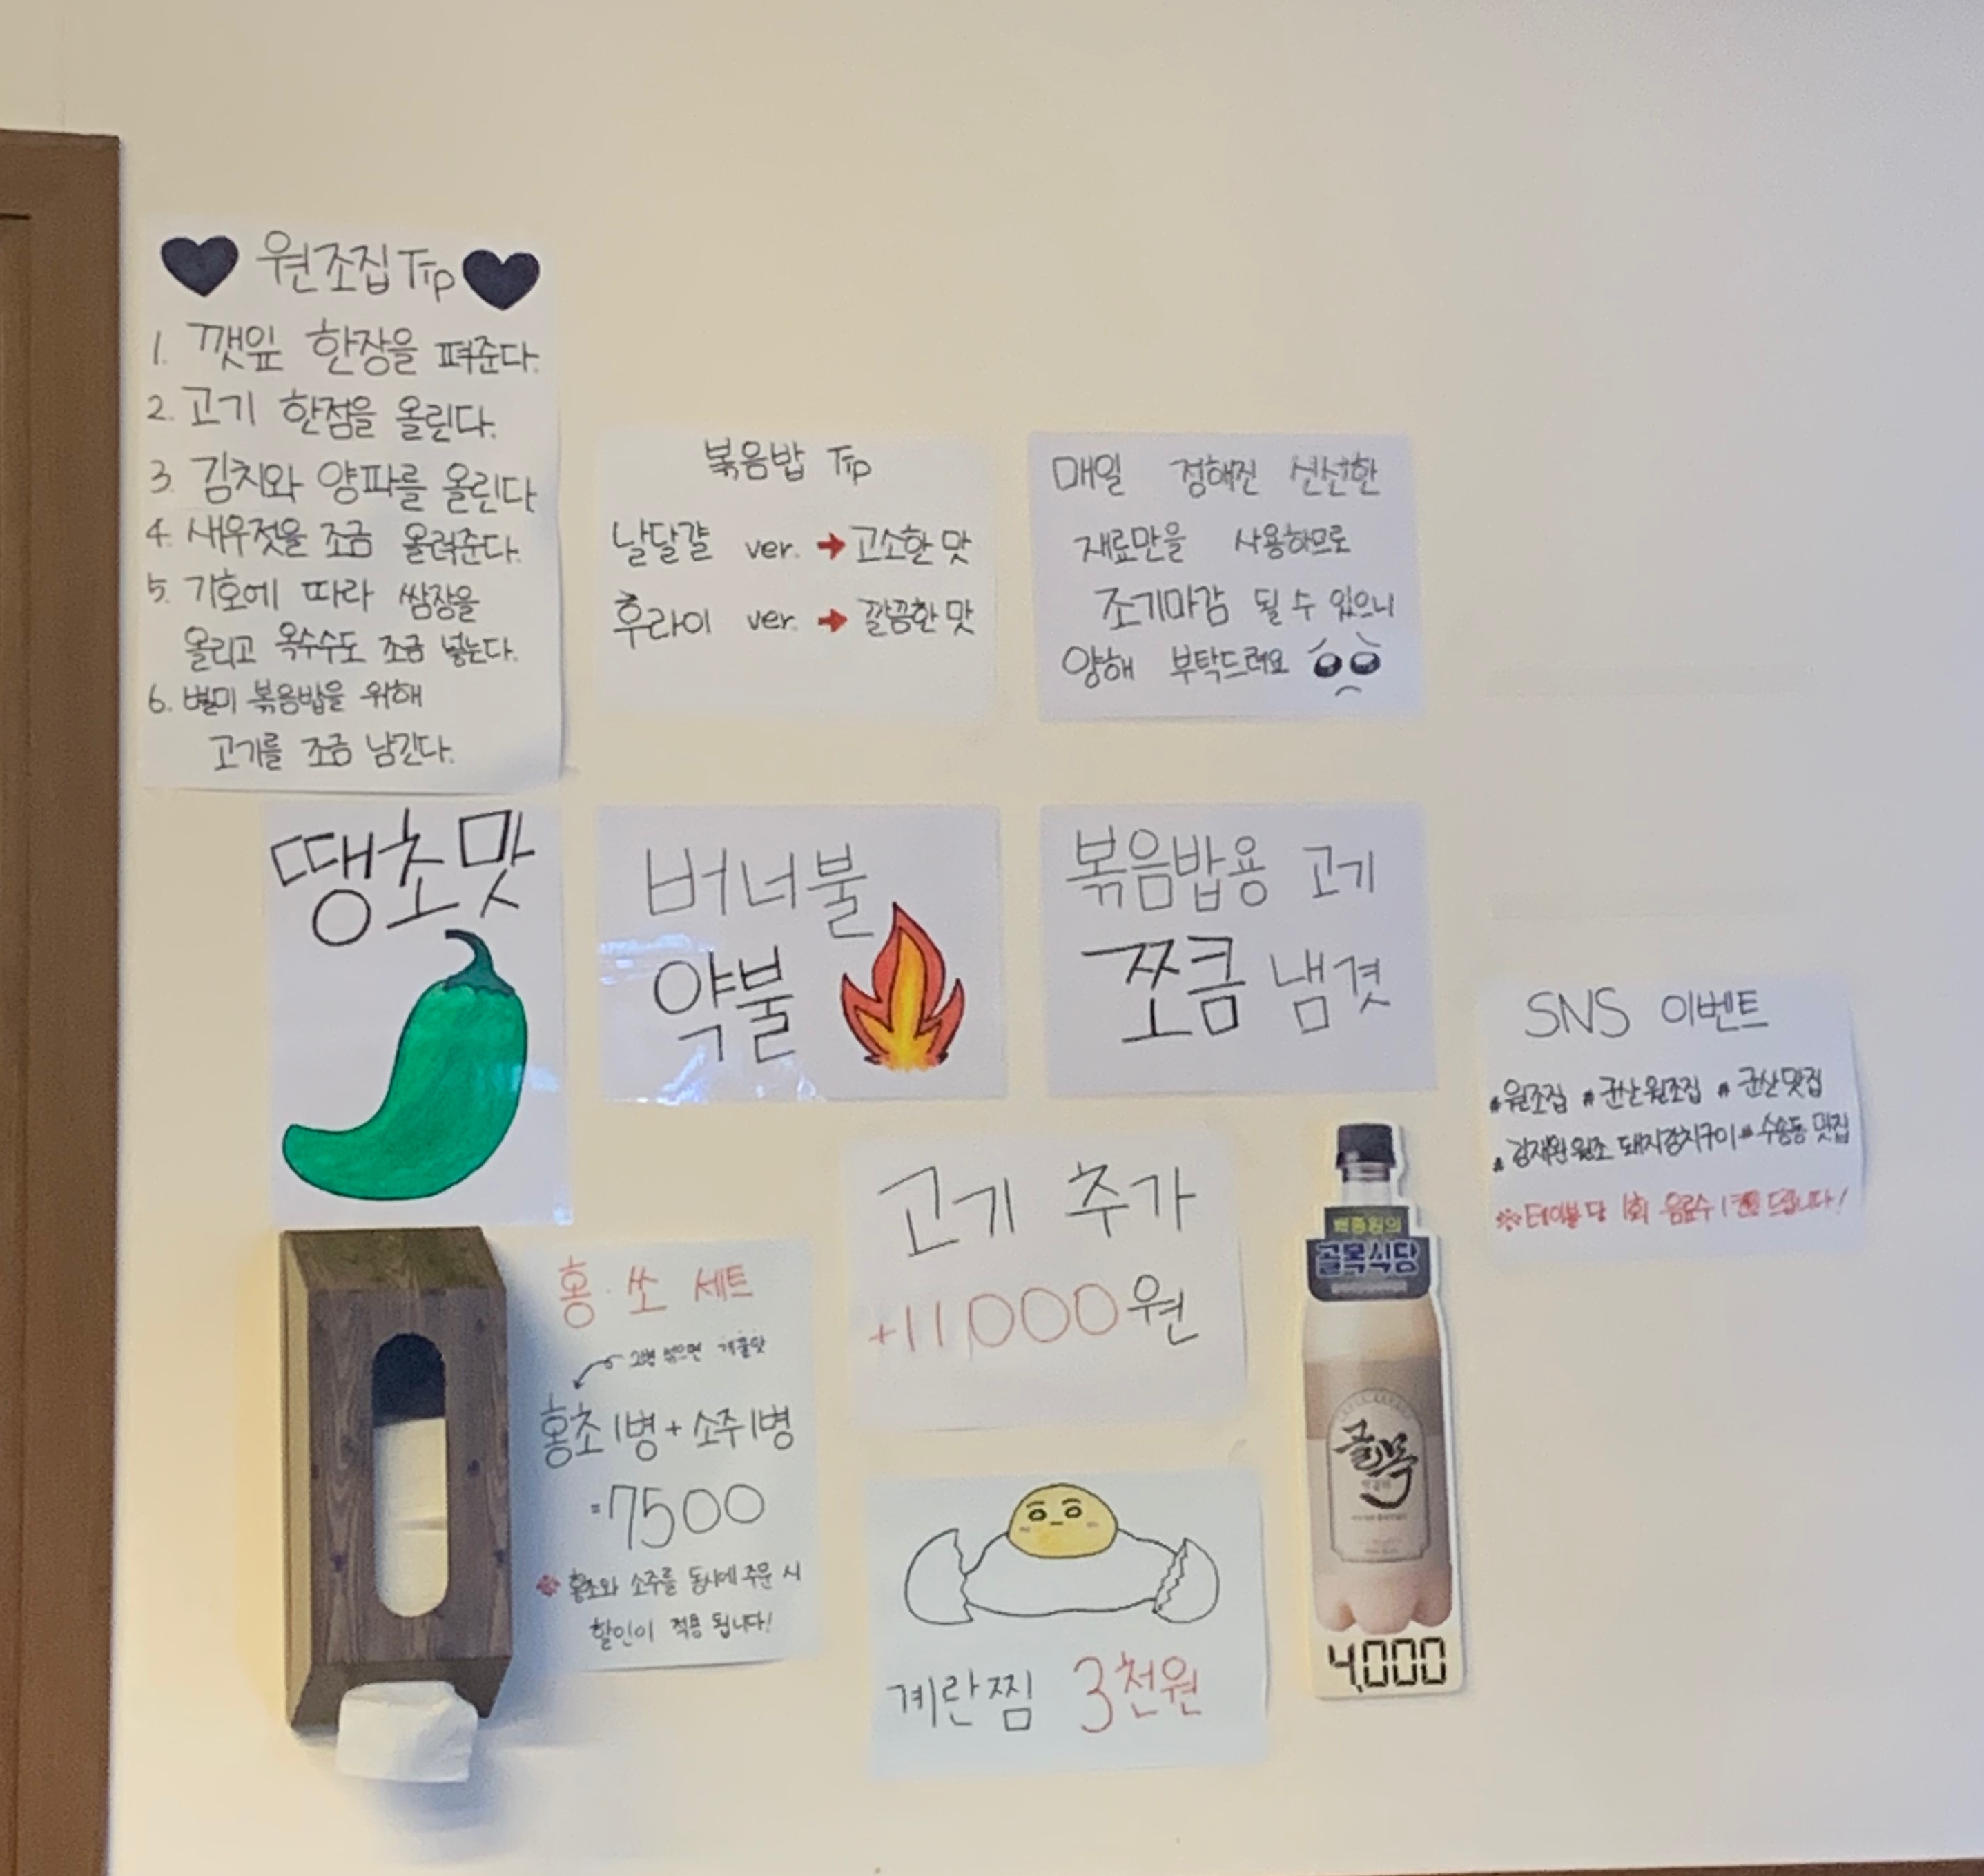 원조집 Tip
1. 깻잎 한장을 펴준다.
2. 고기 한점을 올린다.
3. 김치와 양파를 올린다
4. 새우젓을 조금 올려준다.
5. 기호에 따라 쌈장을
올리고 옥수수도 조금 넣는다.
6. 별미 볶음밥을 위해
고기를 조금 남긴다.
볶음밥 Tip
날달걀 ver. → 고소한 맛
후라이 ver. → 깔끔한 맛
매일 정해진 신선한
재료만을 사용하므로
조기마감 될 수 있으니
양해 부탁드려요
땡초맛
버너불
약불
볶음밥용 고기
쪼큼 냄겻
SNS 이벤트
#원조집 #군산원조집 #군산맛집
#김재완원조 돼지김치구이 #수송동 맛집
※테이블 당 1회 음료수 1캔을 드립니다!
고기 추가
+11,000원
홍·쏘 세트
섞으면 개꿀맛
홍초1병+소주1병
=7500
※ 홍초와 소주를 동시에 주문 시
할인이 적용 됩니다!
계란찜 3천원
백종원의
골목식당
골목
막걸리
4,000